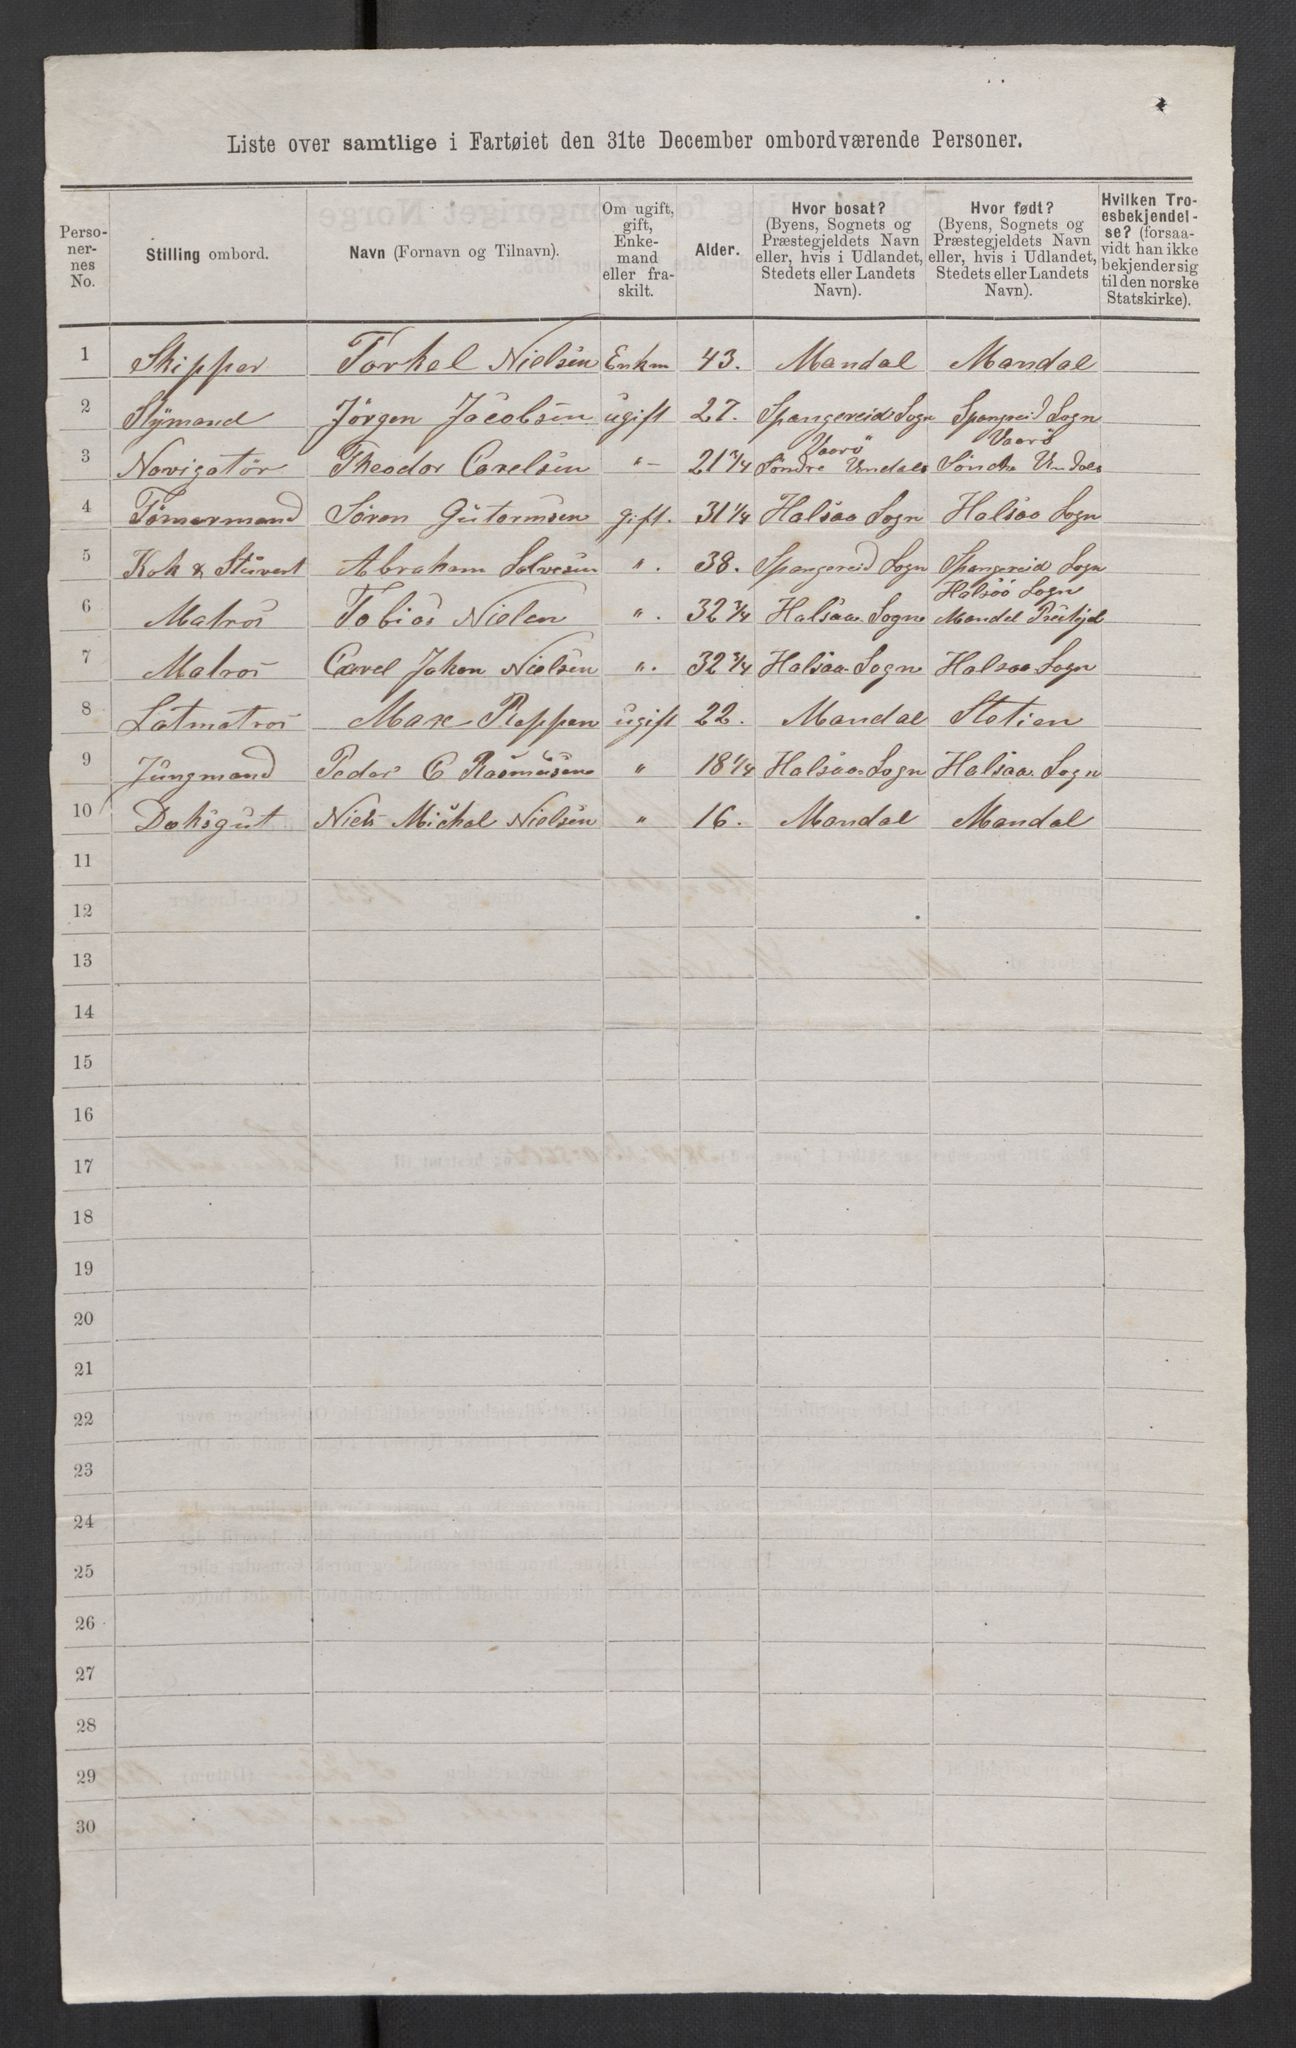 Liste over samtlige i Fartøiet den 31te December ombordværende Personer.
Perso-ner-nes No. | Stilling ombord. | Navn (Fornavn og Tilnavn). | Om ugift, gift, Enke-mand eller fra-skilt. | Alder. | Hvor bosat? (Byens, Sognets og Præstegjeldets Navn eller, hvis i Udlandet, Stedets eller Landets Navn). | Hvor født? (Byens, Sognets og Præstegjeldets Navn eller, hvis i Udlandet, Stedets eller Landets Navn). | Hvilken Tro-esbekjendel-se? (forsaa-vidt han ikke bekjender sig til den norske Statskirke).
1 Skipper Torkel Nielsen Enkm 43. Mandal Mandal
2 Stÿmand Jörgen Jacobsen ugift 27. Spangereid Sogn Spangreid Sogn
3 Navigatör Theodor Carelsen "- 21 3/4 Vaarö Söndre Undals Vaarö Söndre Undals
4 Tömermand Sören Gutormsen gift. 31 1/4 Halsaa Sogn Halsaa Sogn
5 Kok & Stuvert Abraham Salvesen ". 38. Spangereid Sogn Spangereid Sogn
6 Matros Tobias Nielen ". 32 3/4 Halsaa Sogn Halsöö Sogn Mandal
7 Matros Carel Johan Nielsen ". 32 3/4 Halsaa Sogn Halsaa Sogn
8 Latmatros Max Reppen ugift 22. Mandal Statien
9 Jungmand Peder C Rasmusen " 18 1/4 Halsaa Sogn Halsaa Sogn
10 Daksgut Niels Michal Nielsen " 16. Mandal Mandal
11
12
13
14
15
16
17
18
19
20
21
22
23
24
25
26
27
28
29
30